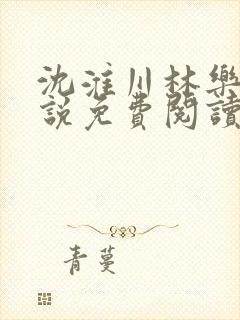 沈淮川林樂
說免費閱讀
青蔓